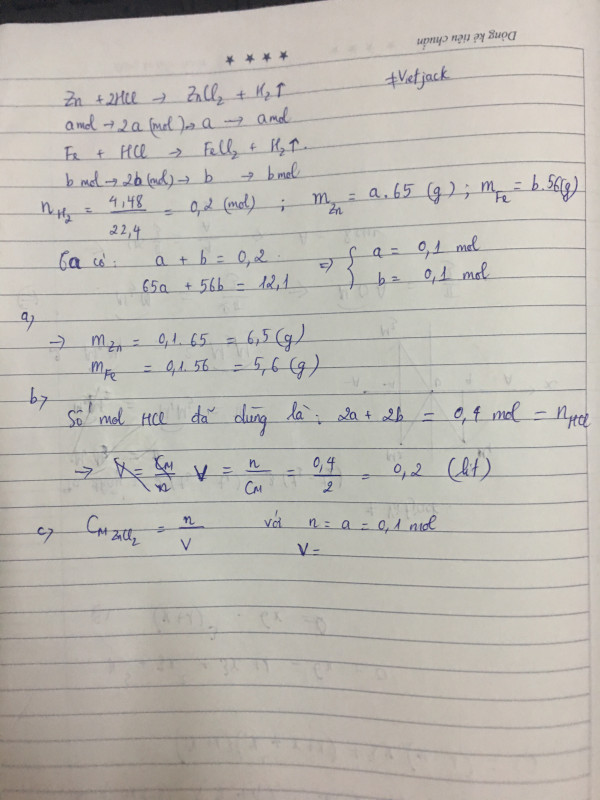 Dòng kẻ tiêu chuẩn
★ ★ ★ ★
≠ Vietjack
Zn + 2HCl → ZnCl₂ + H₂↑
a mol → 2a (mol) → a → a mol
Fe + HCl → FeCl₂ + H₂↑.
b mol → 2b (mol) → b → b mol
n_H₂ = 4,48/22,4 = 0,2 (mol) ; m_Zn = a.65 (g) ; m_Fe = b.56 (g)
Ta có: a + b = 0,2 ⇒ { a = 0,1 mol
65a + 56b = 12,1 b = 0,1 mol
a,
→ m_Zn = 0,1.65 = 6,5 (g)
m_Fe = 0,1.56 = 5,6 (g)
b,
Số mol HCl đã dùng là: 2a + 2b = 0,4 mol = n_HCl
→ V = n/C_M = 0,4/2 = 0,2 (lít)
c, C_M ZnCl₂ = n/V với n = a = 0,1 mol
V =